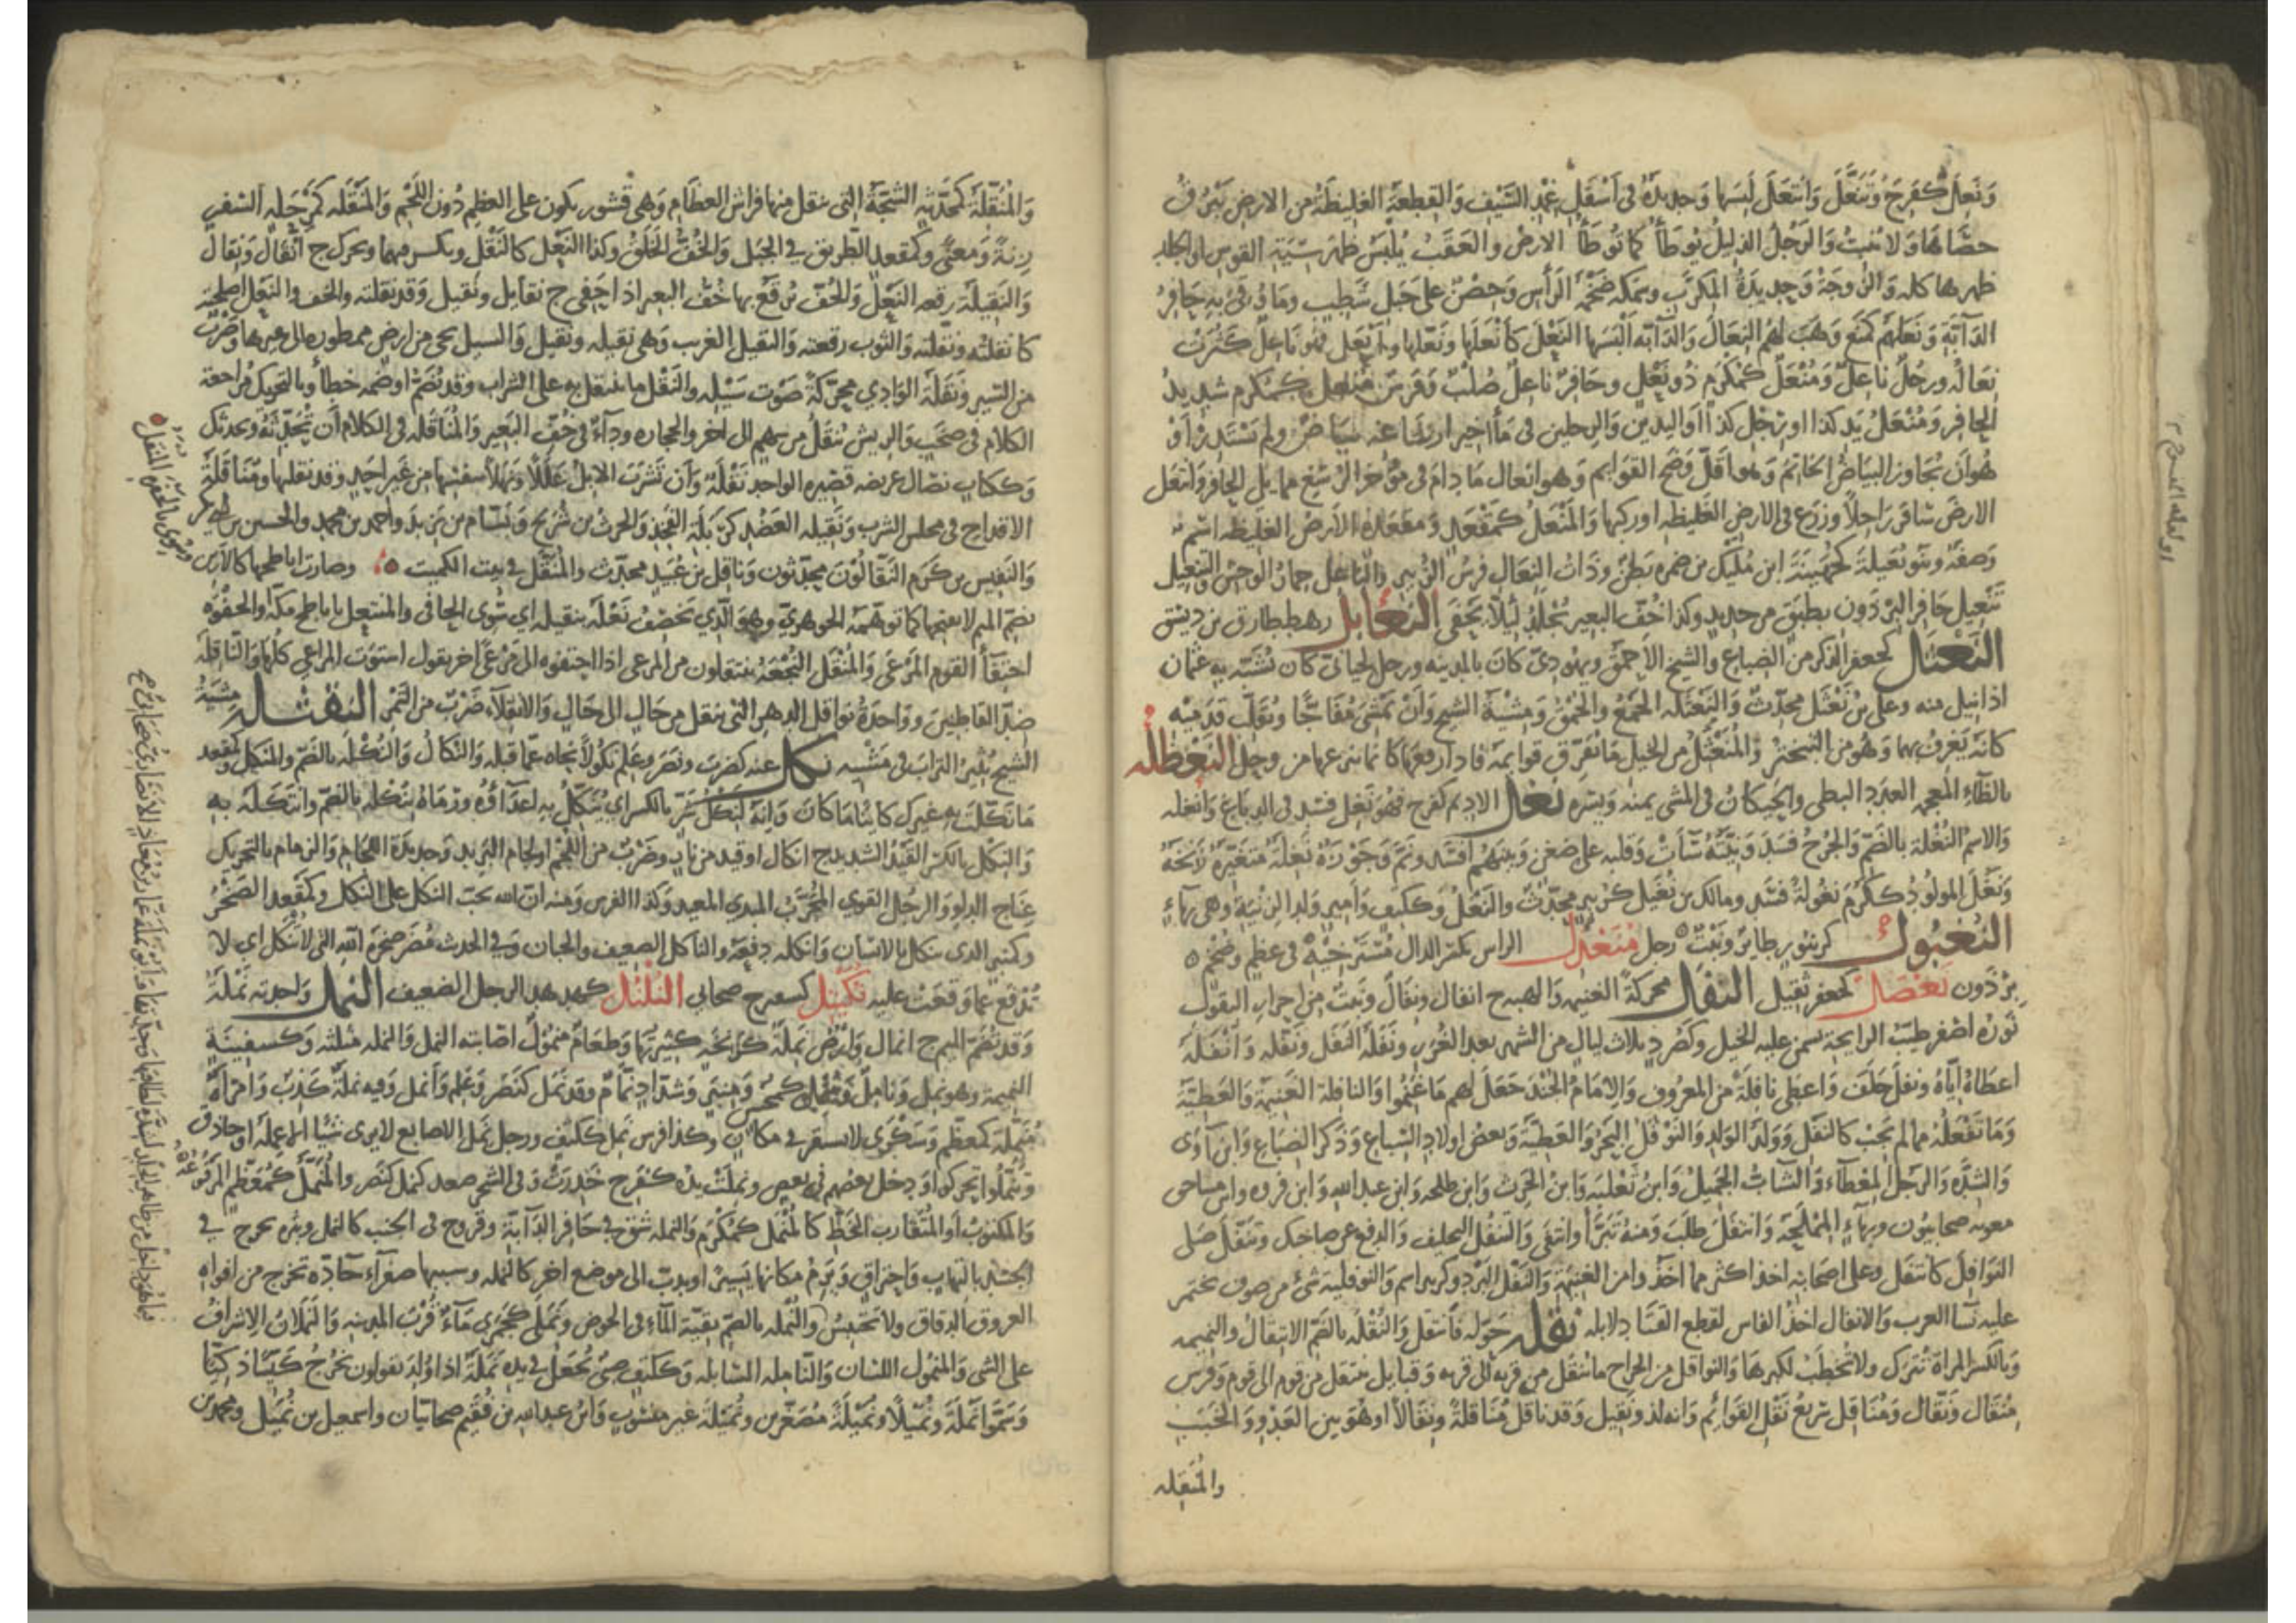 ونعل كفرح وتنعل وانتعل لبسها وحديدة في أسفل غمد السيف والقطعة الغليظة من الارض يبرق
حصاها ولا تنبت والرجل الذليل يوطأ كما توطأ الارض والعقب يلبس ظهر سية القوس او الجلد
ظهرها كله والزوجة وحديدة المكرب وسمكه ضخمة الرأس وحصن على جبل شطب وما وقي به حافر
الدابة ونعلهم كمنع وهب لهم النعال والدابة ألبسها النعل كأنعلها ونعلها وأنعل فهو ناعل كثرت
نعاله ورجل ناعل ومنعل كمكرم ذو نعل وحافر ناعل صلب وفرس منعل كمكرم شديد
الحافر ومنعل يد كذا او رجل كذا او اليدين والرجلين في مآخير ارساغه بياض ولم يستدر أو
هو أن يجاوز البياض الخاتم وهو اقل وضح القوايم وهو انعال ما دام في مؤخر الرسغ مما يلي الحافر وانتعل
الارض سافر راجلا وزرع في الارض الغليظه او ركبها والمنعل كمقعد ومقعدة الارض الغليظه اسم
وصفة وبنو نعيلة كجهينة ابن مليك بن ضمره بطن وذات النعال فرس الزبير والناعل حمار الوحش والتنعيل
تنعيل حافر البرذون بطبق من حديد وكذا خف البعير بجلد لئلا يحفى النعابل رهط طارق بن ديسق
النعثل كجعفر الذكر من الضباع والشيخ الاحمق ويهودي كان بالمدينه ورجل لحياني كان يشبه به عثمان
اذا نيل منه وعلي بن نعثل محدث والنعثلة الجمع والحمق ومشية الشيخ وأن يمشي مفاجا ويقلب قدميه
كأنه يغرف بهما وهو من التبختر والمنعثل من الخيل ما يفرق قوايمه فاذا رفعها كأنما ينزعها من وحل النعظلة
بالظاء المعجمه العدو البطي والحيكان في المشي يمنه ويسره نغل الاديم كفرح فهو نغل فسد في الدباغ وأنغله
والاسم النغلة بالضم والجرح فسد ونيته ساءت وقلبه علي ضغن وبينهم افسد ونم وجوزة نغلة متغيرة زنخة
ونغل المولود ككرم نغولة فسد ومالك بن نغيل كزبير محدث والنغل وككتف وأمير ولد الزنية وهي بهاء
النغبول كزنبور طاير ونبت رجل متغدل الراس بكسر الدال مسترخية في عظم وضخم
برذون نغضل كجعفر ثقيل النفل محركة الغنيمه والهبه ج انفال ونفال ونبت من احرار البقول
نوره اصفر طيب الرايحة تسمن عليه الخيل وكصرد ثلاث ليال من الشهر بعد الغرر ونفله النفل ونفله وأنفله
اعطاه اياه ونفل حلف واعطى نافلة من المعروف والامام الجند جعل لهم ما غنموا والنافلة الغنيمة والعطية
وما تفعله مما لم يجب كالنفل وولد الولد والنوفل البحر والعطية وبعض اولاد السباع وذكر الضباع وابن آوى
والشدة والرجل المعطاء والشاب الجميل وابن ثعلبه وابن الحرث وابن طلحه وابن عبد الله وابن فروه وابن مساحق
معويه صحابيون وبهاء المملحة وانتفل طلب ومنه تبرأ وانتفى والتنفل التحليف والدفع عن صاحبك وتنفل صلى
النوافل كانتفل وعلى اصحابه اخذ اكثر مما اخذوا من الغنيمة والنفل البرد وكزبير اسم والنوفلية شئ من صوف تختمر
عليه نسا العرب والانفال اخذ الفاس لقطع القتا دلابله نقله حوله فانتقل والنقله بالضم الانتقال والنميمه
وبالكسر المراة تترك ولا تخطب لكبرها والنواقل من الخراج ما ينقل من قريه الى قريه وقبايل تنتقل من قوم الى قوم وفرس
منقال ونقال ومناقل سريع نقل القوائم وانه لذو نقيل وقد ناقل مناقلة ونقالا او هو بين العدو والخبب
والمنقله
والمنقلة كمحدثة الشجة التي تنقل منها فراش العظام وهي قشور تكون على العظم دون اللحم والمنقله كمرحله السفر
زنة ومعنى وكمقعد الطريق في الجبل والخف الخلق وكذا النعل كالنقل ويكسر فيهما ويحرك ج انقال ونقال
والنقيلة رقعه النعل والخف ترقع بها خف البعير اذا حفي ج نقايل ونقيل وقد نقلته والخف والنعل اصلحته
كانقلته ونقلته والثوب رقعته والنقيل الغريب وهي نقيله ونقيل والسيل يجي من ارض ممطوره الى غيرها وضرب
من السير ونقلة الوادي محركة صوت سيله والنقل ما يتنقل به على الشراب وقد يضم او ضمه خطأ وبالتحريك مراجعة
الكلام في صخب والريش ينقل من سهم الى اخر والحجاره وداء في خف البعير والمناقله في الكلام أن تحدثه ويحدثك
وككتاب نصال عريضه قصيره الواحد نقلة وأن تشرب الابل عللا ونهلا بنفسها من غير احد وقد نقلتها ومناقلة
الاقداح في مجلس الشرب ونقيله العضد كربلة الفخذ والحرث بن شريح وبسام بن يزيد واحمد بن محمد والحسين بن
والنفيس بن كرم النقالون محدثون وناقل بن عبيد محدث والمنقل في بيت الكميت وصارت اباطحها كالارين
بضم الميم لا بفتحها كما توهمه الجوهري وهو الذي يخصف نعله بنقيله اي سوى الحافي والمنتعل باباطح مكة والحفوة
احتفأ القوم المرعى والمنقل النجعة ينتقلون من المرعى اذا احتفوه الى مرعى اخر يقول استوت المراعي كلها والناقلة
ضد القاطنين وواحدة نواقل الدهر التي تنقل من حال الى حال والانقلاء ضرب من التمر النقثلة مشية
الشيخ يثير التراب في مشيه نكل عنه كضرب ونصر وعلم نكولا نحاه عما قبله والنكال والنكلة بالضم والمنكل كمقعد
ما نكلت به غيرك كائنا ما كان وانه لنكل شر بالكسر اي ينكل به اعداؤه ورماه بنكله بالضم وانتكله به
والنكل بالكسر القيد الشديد ج انكال او قيد من نار وضرب من اللجم او لجام البريد وحديدة اللجام والزمام بالتحريك
عناج الدلو والرجل القوي المجرب المبدي المعيد وكذا الفرس ومنه ان الله يحب النكل على النكل وكمقعد الصخر
وكمنبر الذي ينكل بالانسان وانكله دفعه والناكل الضعيف والجبان وفي الحدث مضر صخرة الله التي لا تنكل اي لا
تدفع عما وقعت عليه نكبتل كسفرج صحابي النلنل كهدهد الرجل الضعيف النمل واحدته نملة
وقد تضم الميم ج نمال وارض نملة كزنخة كثيرتها وطعام منمول اصابته النمل والنمله مثلثه وكسفينة
النميمة وهو نمل ونامل ومنمل كمحسن ومنبر وشداد نمام وقد نمل كنصر وعلم وأنمل وفيه نملة كذب وامرأة
منملة كمعظم وسكرى لا تستقر في مكان وكذا فرس نمل ككتف ورجل نمل الاصابع لا يرى شيئا الا عمله او حاذق
وتنملوا تحركوا ودخل بعضهم في بعض ونملت يده كفرح خدرت وفي الشجر صعد كنمل كنصر والمنمل كمعظم المرفو
والمكتوب او المتقارب الخط كالمنمل كمكرم والنمله شق في حافر الدابة وقروح في الجنب كالنمل وبثره تخرج في
الجسد بالتهاب واحتراق ويرم مكانها يسيرا ويدب الى موضع اخر كالنمله وسببها صفراء حادة تخرج من افواه
العروق الدقاق ولا تحتبس والنمله بالضم بقية الماء في الحوض ونملى كجمزى ماء قرب المدينه والنملان الاشراف
على الشي والمنمول اللسان والناملة السابله وككتف صبي تجعل في يده نملة اذا ولد يقولون يخرج كيسا ذكيا
وسموا نملة ونميلا ونميلة مصغرين ونميلة غير منسوب وابن عبد الله بن فقيم صحابيان واسمعيل بن نميل ومحمد بن